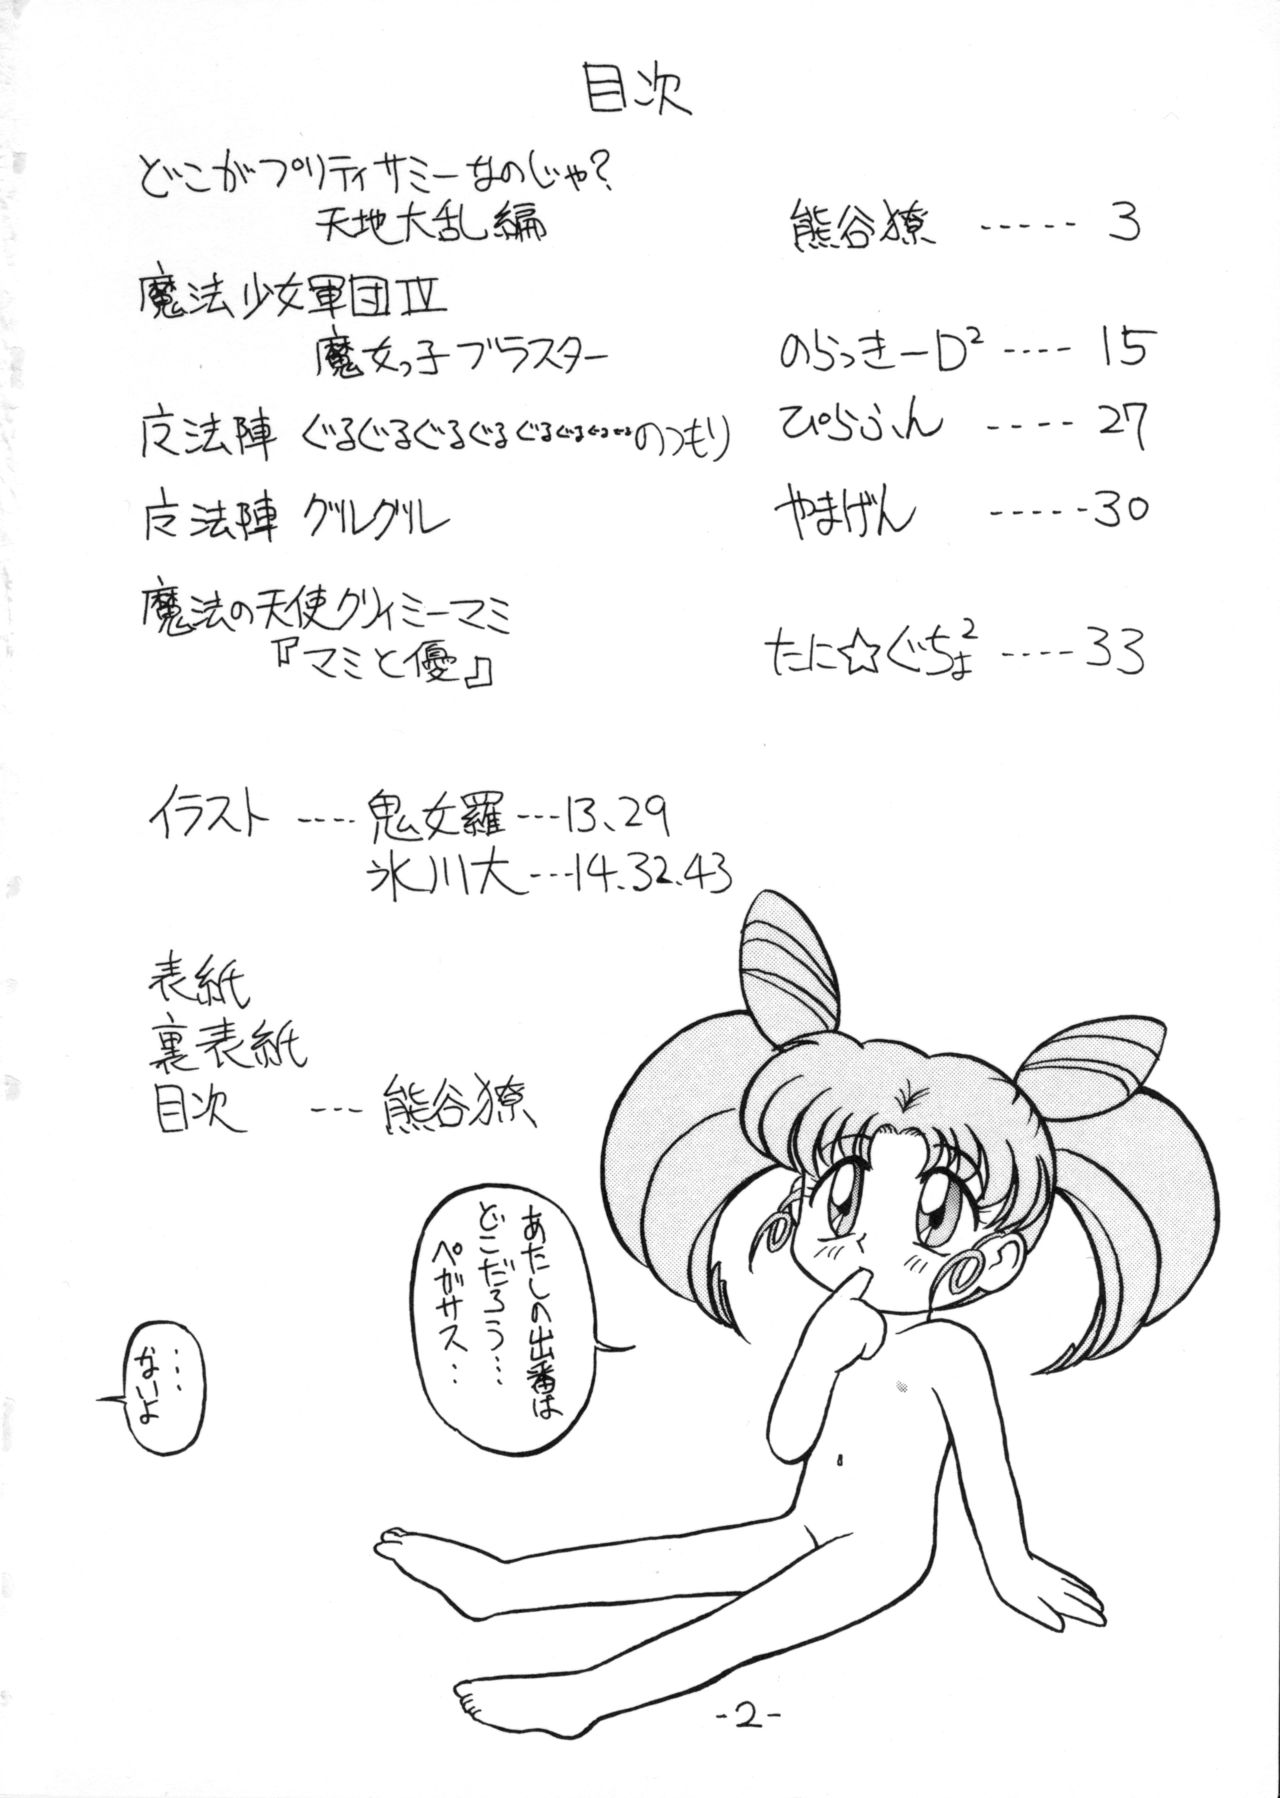 目次
どこがプリティサミーなのじゃ?
天地大乱編 熊谷獠 ----- 3
魔法少女軍団Ⅳ
魔女っ子ブラスター のらっきーD² ---- 15
广法陣 ぐるぐるぐるぐるぐるぐるぐるのつもり ぴらふん ---- 27
广法陣 グルグル やまげん -----30
魔法の天使クリィミーマミ
『マミと優』 たに☆ぐちょ² ---- 33
イラスト ---- 鬼女羅---13、29
氷川大---14.32.43
表紙
裏表紙
目次 --- 熊谷獠
あたしの出番は
どこだろう…
ペガサス‥
…
ないよ
-2-